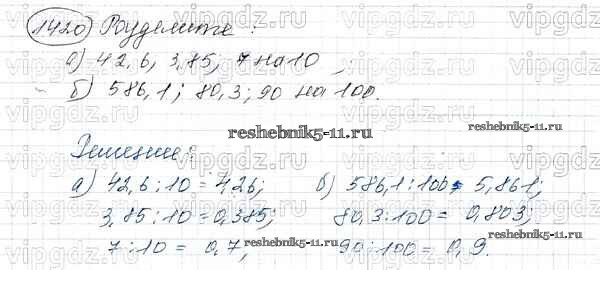 1420 Разделите:
а) 42,6; 3,85; 7 на 10;
б) 586,1; 80,3; 90 на 100.
reshebnik5-11.ru
Решение:
reshebnik5-11.ru
а) 42,6:10 = 4,26; б) 586,1:100 = 5,861;
3,85:10 = 0,385; 80,3:100 = 0,803;
7:10 = 0,7; 90:100 = 0,9.
reshebnik5-11.ru
reshebnik5-11.ru